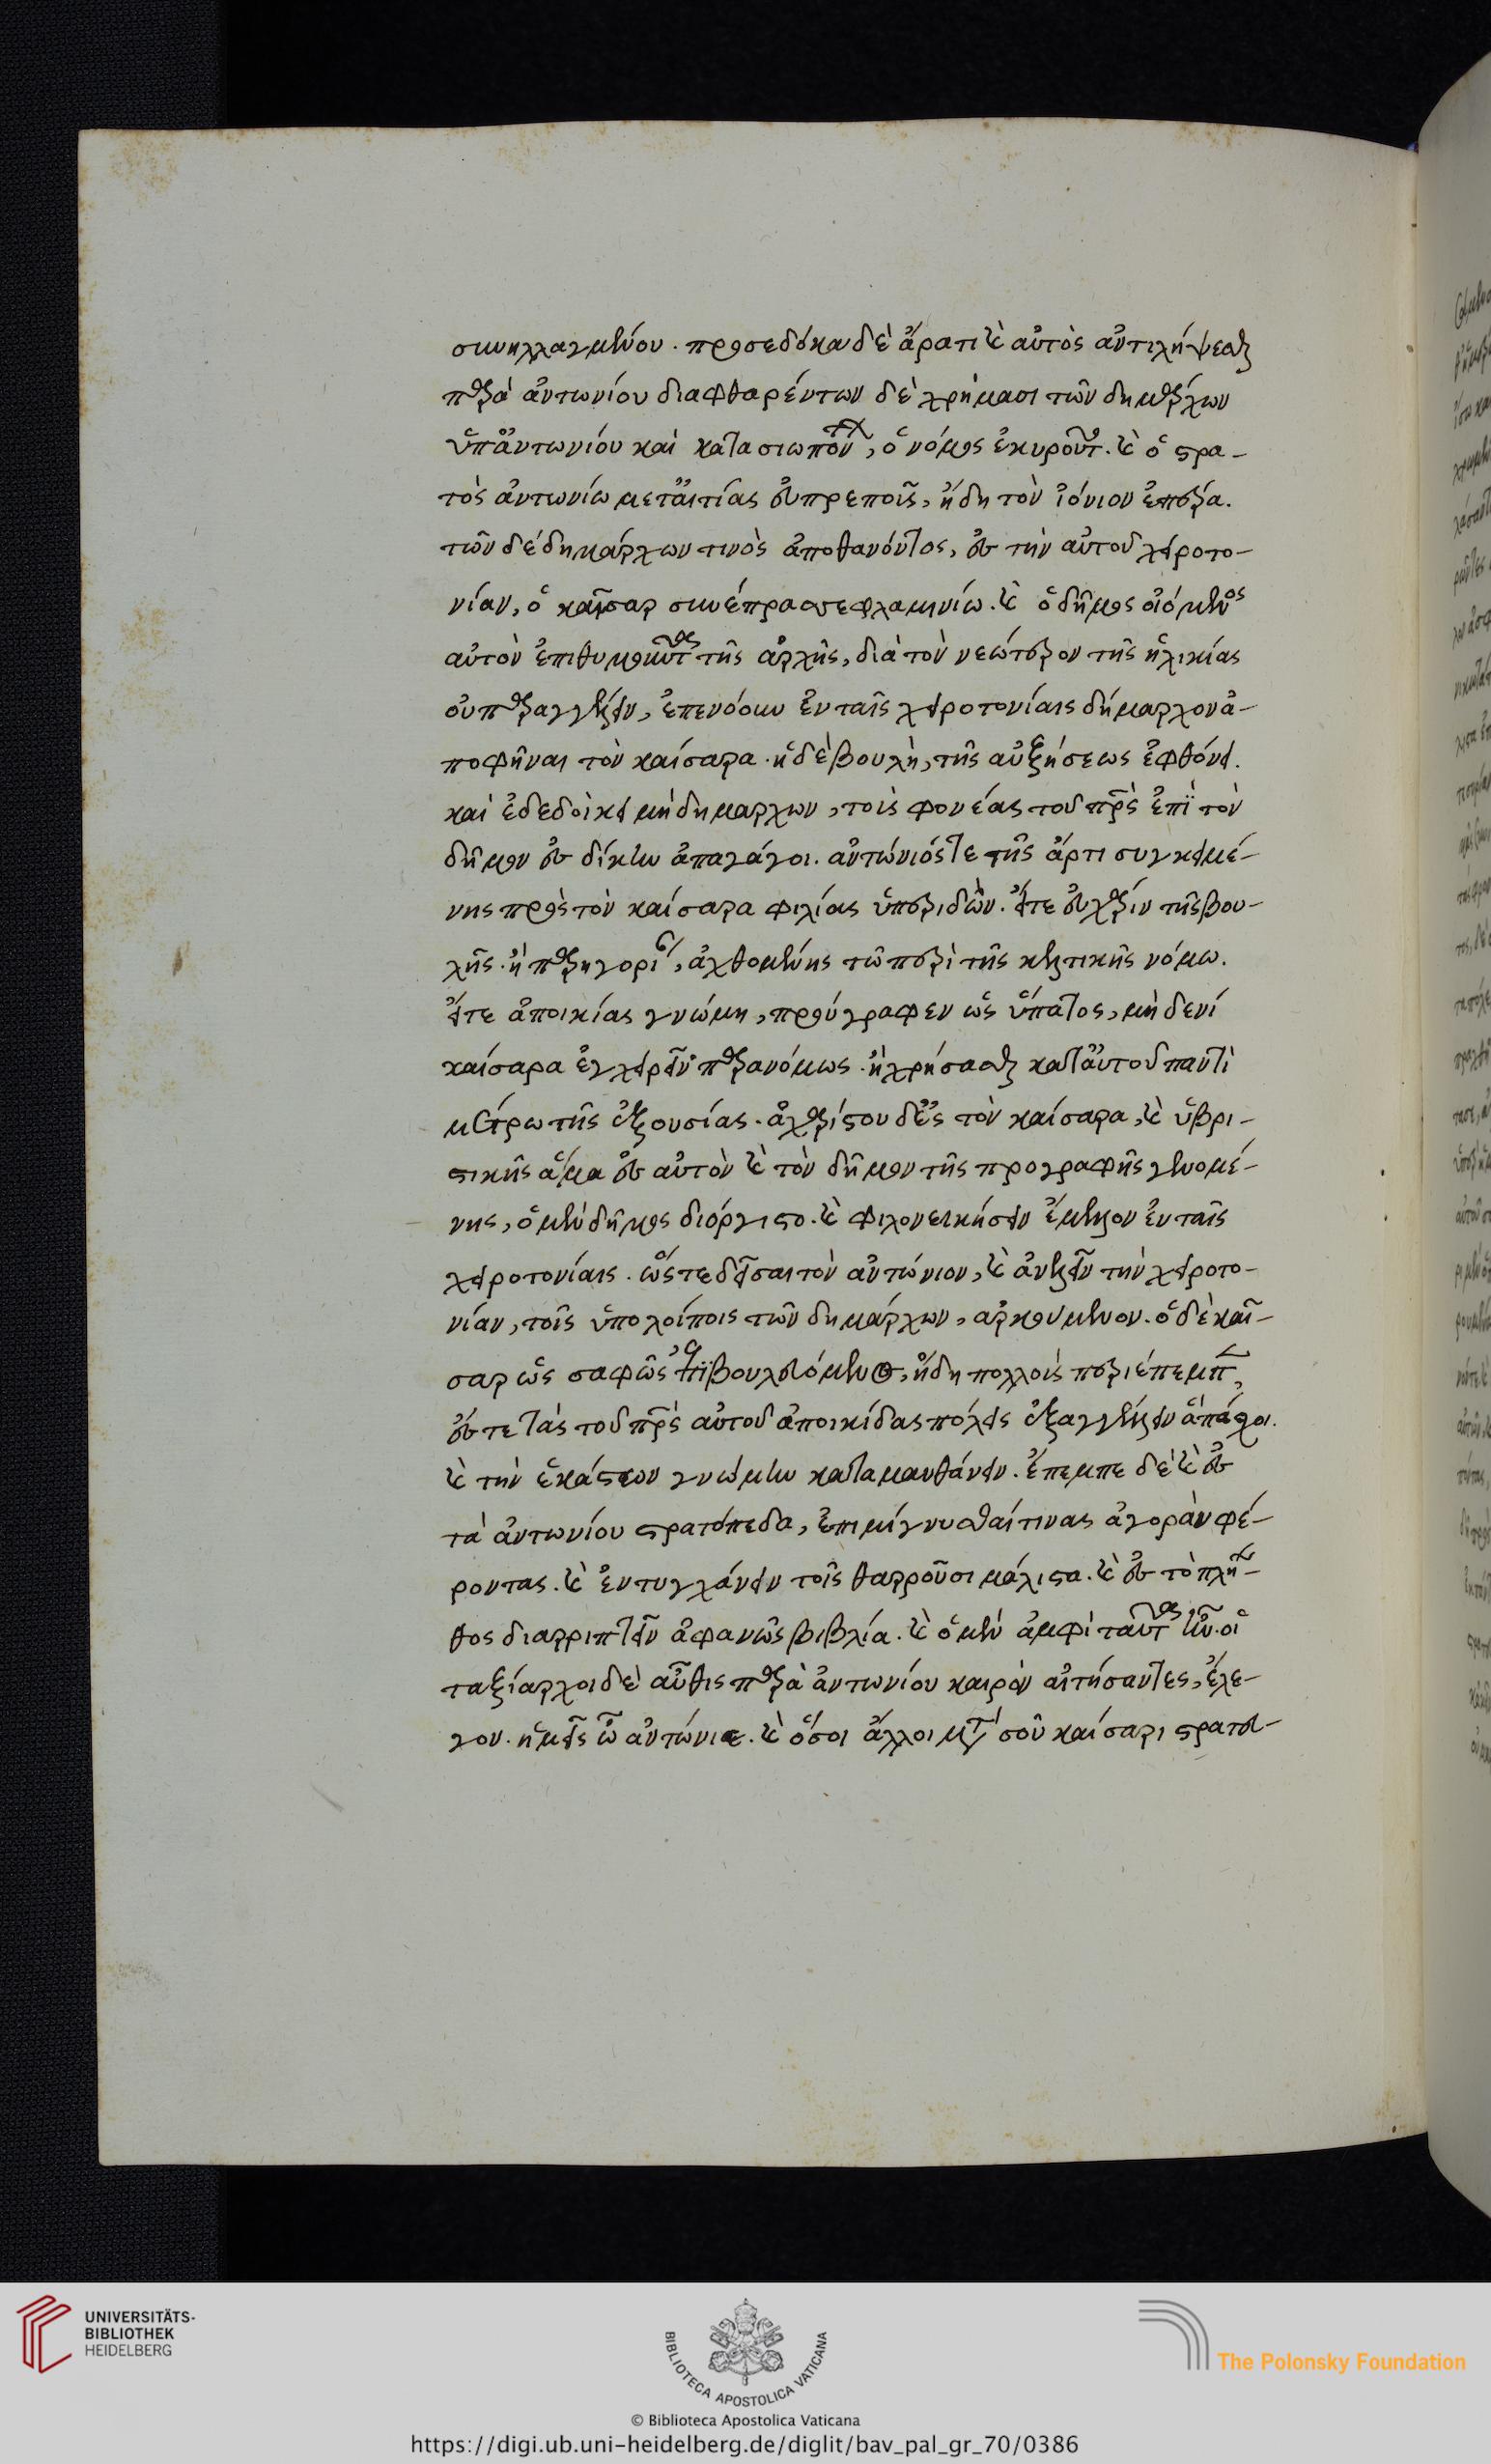 συνηλλαγμένου. προσεδόκα δὲ ἄρα τι καὶ αὐτὸς ἀντιλήψεσθαι
παρὰ ἀντωνίου διαφθαρέντων δὲ χρήμασι τῶν δημάρχων
ὑπ' ἀντωνίου καὶ κατασιωπόντων, ὁ νόμος ἐκυροῦτο. καὶ ὁ στρα-
τὸς ἀντωνίω μετ' αἰτίας εὐπρεποῦς, ἤδη τὸν ἰόνιον ἐπέρα.
τῶν δὲ δημάρχων τινὸς ἀποθανόντος, ἐς τὴν αὐτοῦ χειροτο-
νίαν, ὁ καῖσαρ συνέπρασσε φλαμινίω. καὶ ὁ δῆμος οἰόμενος
αὐτὸν ἐπιθυμοῦντα τῆς ἀρχῆς, διὰ τὸν νεώτερον τῆς ἡλικίας
οὐ παραγγέλλειν, ἐπενόουν ἐν ταῖς χειροτονίαις δήμαρχον ἀ-
ποφῆναι τὸν καίσαρα. ἡ δὲ βουλὴ, τῆς αὐξήσεως ἐφθόνει.
καὶ ἐδεδοίκει μὴ δημαρχων, τοὺς φονέας τοῦ πρς ἐπὶ τὸν
δῆμον ἐς δίκην ἀπαγάγοι. ἀντώνιός τε τῆς ἄρτι συγκειμέ-
νης πρὸς τὸν καίσαρα φιλίας ὑπεριδὼν. εἴτε ἐς χάριν τῆς βου-
λῆς. ἢ παρηγορίαν, ἀχθομένης τῶ περὶ τῆς κελτικῆς νόμω.
εἴτε ἀποικίας γνώμη, προύγραφεν ὡς ὕπατος, μὴδενὶ
καίσαρα ἐγχειρεῖν παρανόμως. ἢ χρήσασθαι κατ' αὐτοῦ παντὶ
μέτρω τῆς ἐξουσίας. ἀχαρίστου δὲ ἐς τὸν καίσαρα, καὶ ὕβρι-
στικῆς ἅμα ἐς αὐτὸν καὶ τὸν δῆμον τῆς προγραφῆς γενομέ-
νης, ὁ μὲν δῆμος διόργιστο. καὶ φιλονεικήσειν ἔμελλον ἐν ταῖς
χειροτονίαις. ὥστε δεῖσαι τὸν ἀντώνιον, καὶ ἀνελεῖν τὴν χειροτο-
νίαν, τοῖς ὑπολοίποις τῶν δημάρχων, ἀρκούμενον. ὁ δὲ καῖ-
σαρ ὡς σαφῶς ἐπιβουλευόμενος, ἤδη πολλοὺς περιέπεμπεν,
ἐς τε τὰς τοῦ πρς αὐτοῦ ἀποικίδας πόλεις ἐξαγγέλλειν ἃ πάσχοι.
καὶ τὴν ἑκάστων γνώμην καταμανθάνειν. ἔπεμπε δὲ καὶ ἐς
τὰ ἀντωνίου στρατόπεδα, ἐπιμίγνυσθαί τινας ἀγορὰν φέ-
ροντας. καὶ ἐντυγχάνειν τοῖς θαρροῦσι μάλιστα. καὶ ἐς τὸ πλῆ-
θος διαρριπτεῖν ἀφανῶς βιβλία. καὶ ὁ μὲν ἀμφὶ ταῦτα ἦν. οἱ
ταξίαρχοι δὲ αὖθις παρὰ ἀντωνίου καιρὸν αἰτήσαντες, ἔλε-
γον. ἡμεῖς ὦ ἀντώνιε. καὶ ὅσοι ἄλλοι μετὰ σοῦ καίσαρι στρατευ-
UNIVERSITÄTS-
BIBLIOTHEK
HEIDELBERG
BIBLIOTECA APOSTOLICA VATICANA
The Polonsky Foundation
© Biblioteca Apostolica Vaticana
https://digi.ub.uni-heidelberg.de/diglit/bav_pal_gr_70/0386